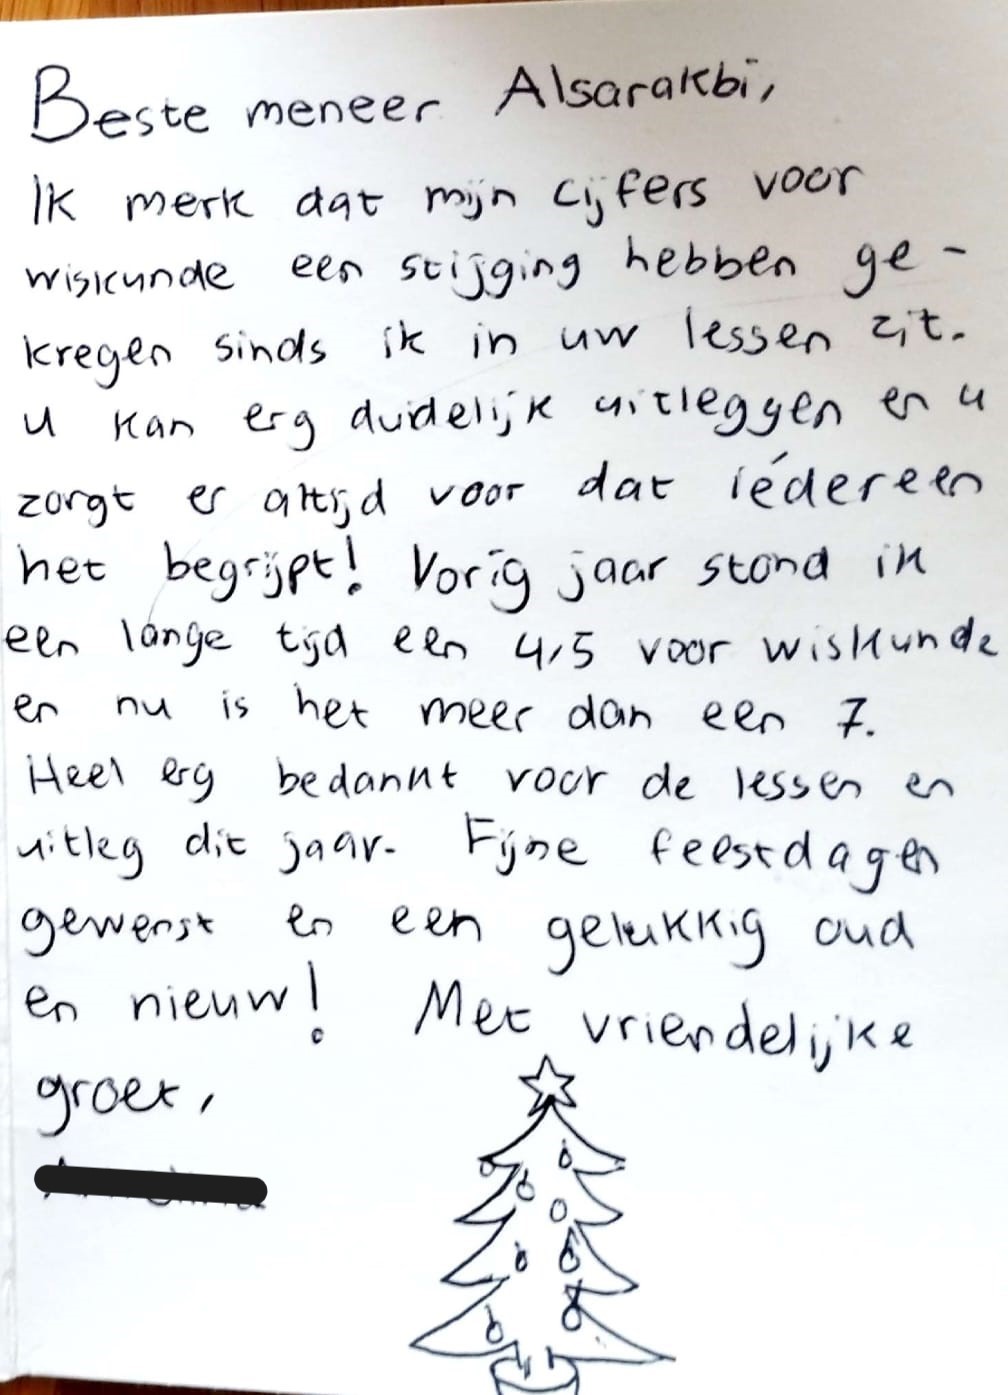 Beste meneer Alsarakbi,
Ik merk dat mijn cijfers voor
wiskunde een stijging hebben ge-
kregen sinds ik in uw lessen zit.
U kan erg duidelijk uitleggen en u
zorgt er altijd voor dat iédereen
het begrijpt! Vorig jaar stond ik
een lange tijd een 4,5 voor wiskunde
en nu is het meer dan een 7.
Heel erg bedankt voor de lessen en
uitleg dit jaar. Fijne feestdagen
gewenst en een gelukkig oud
en nieuw! Met vriendelijke
groet,